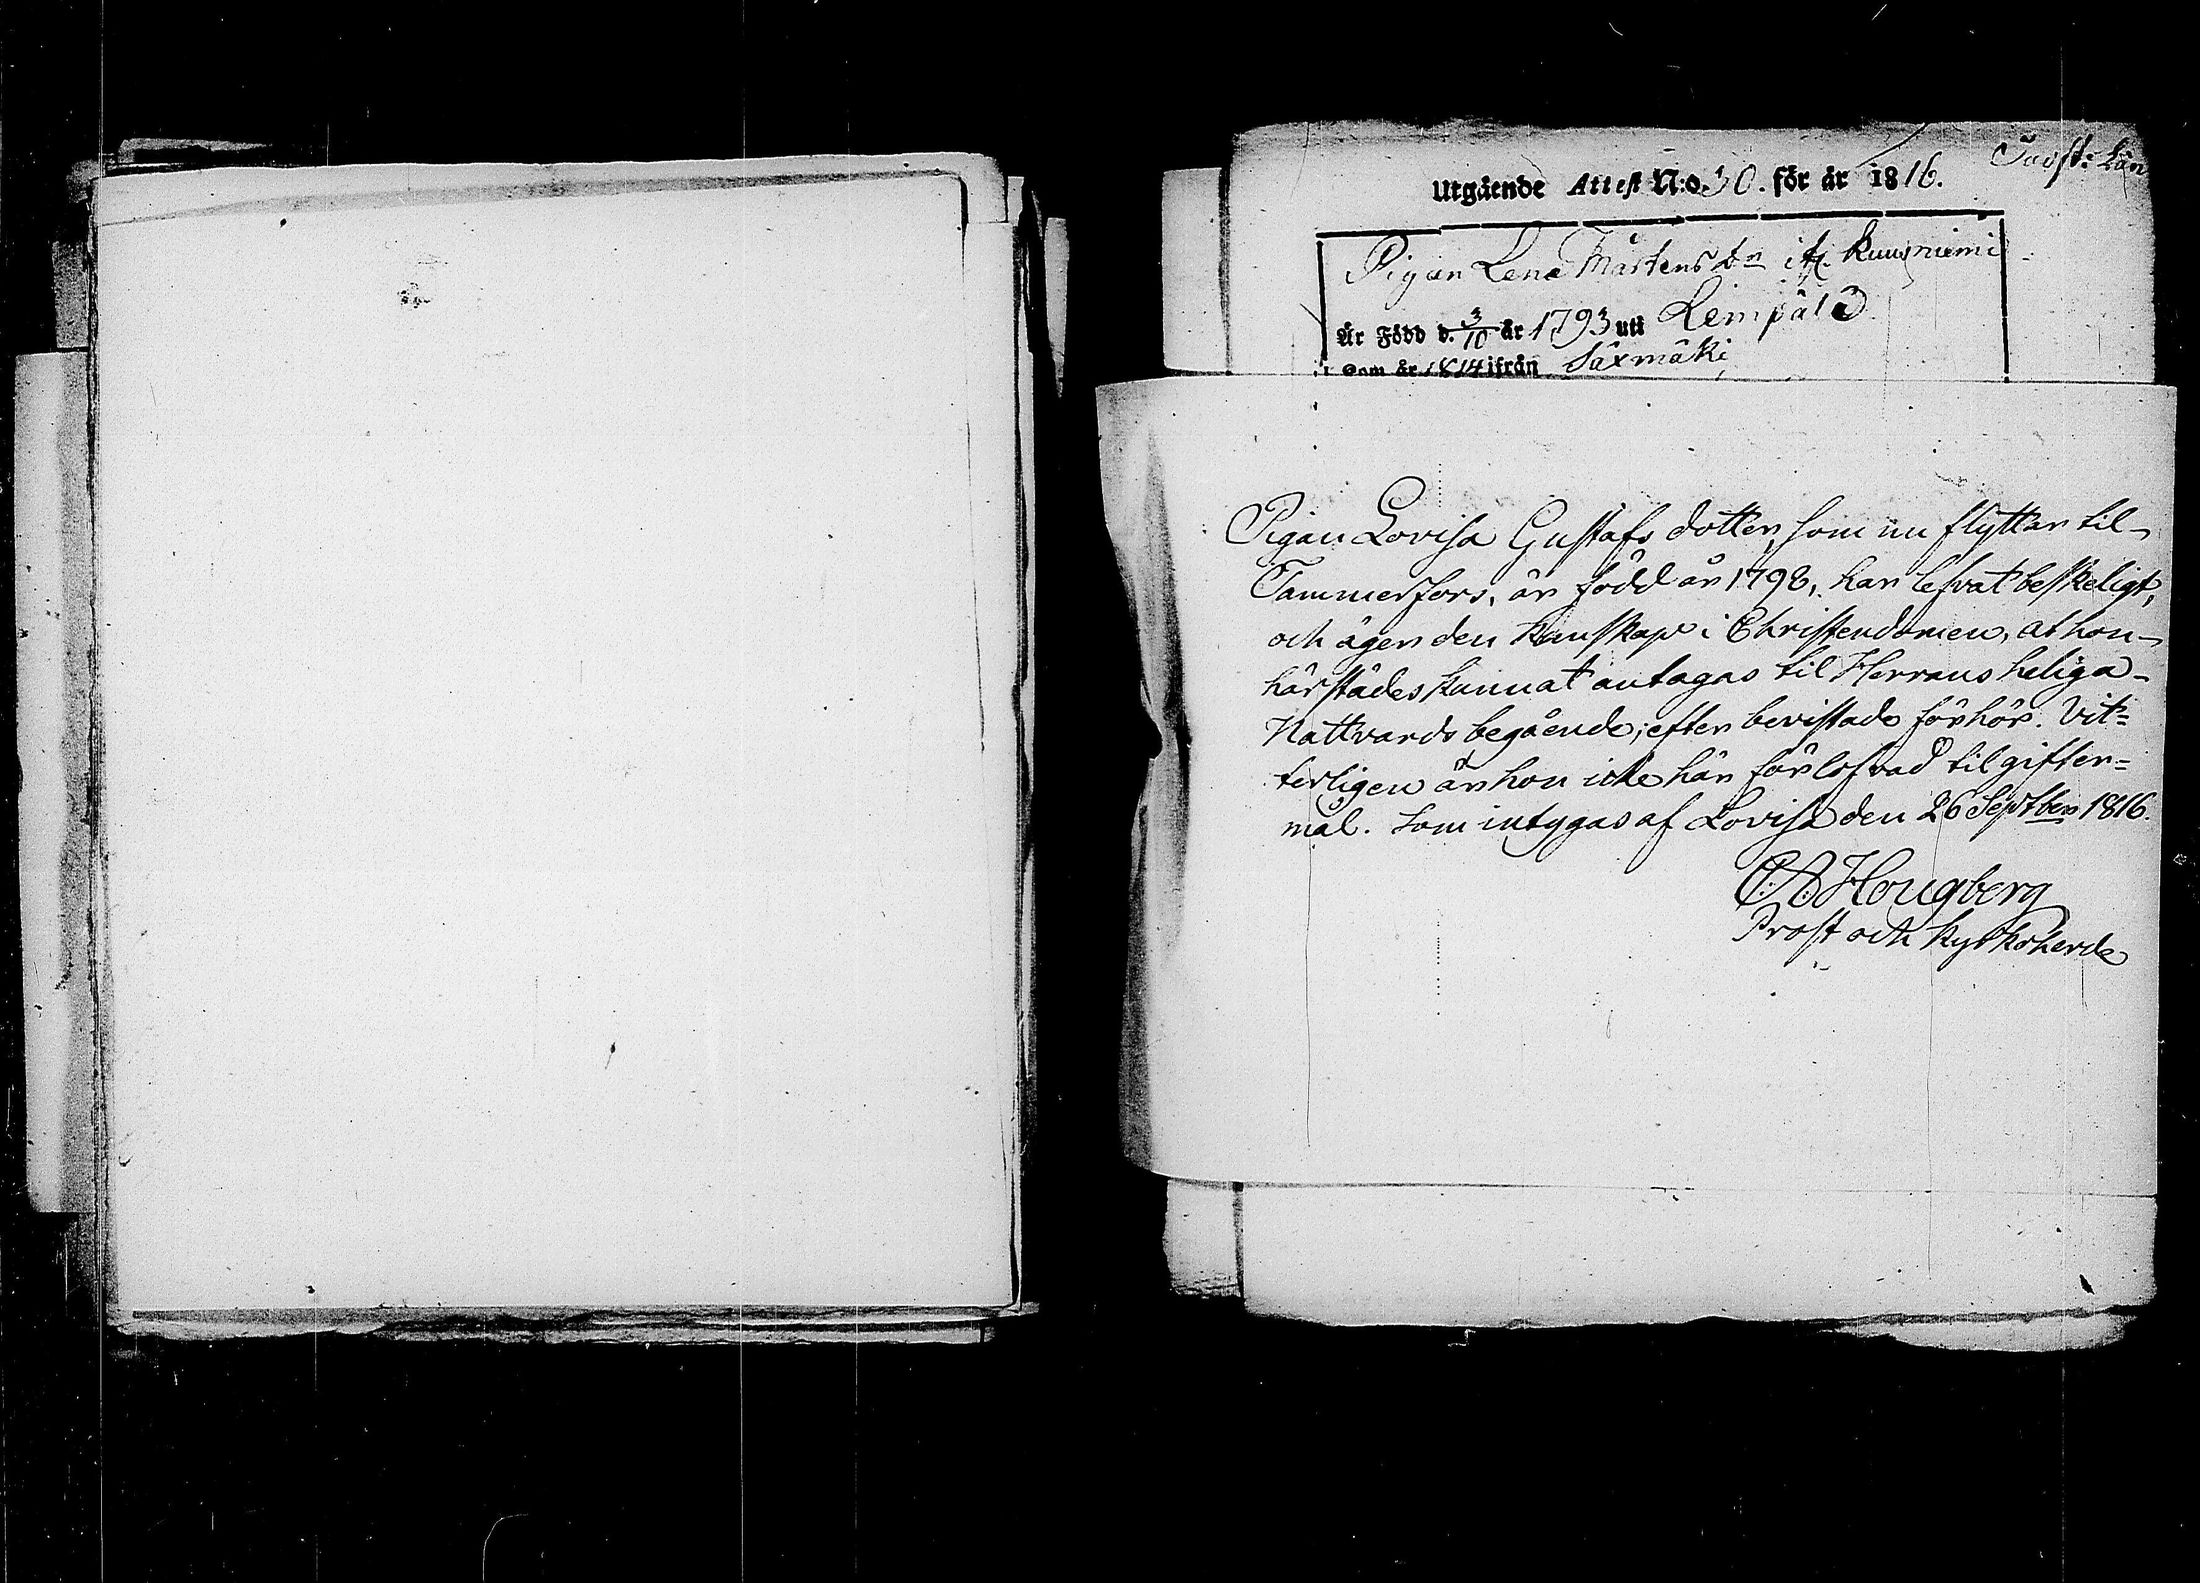 Tavst: Län
Utgående Attest N:o 30. för år 1816.
Pigan Lena Mårtens dn ifr. Kuusniemi
Är Född d. 3/10 år 1793 uti Lempälä
Kom år 1814 ifrån Säxmäki
Pigan Lovisa Gustafs dotter, som nu flyttar til
Tammerfors, är född år 1798, har lefvat beskeligt,
och äger den kunskap i Christendomen, at hon
härstädes kunnat antagas til Herrans heliga
Nattvards begående, efter bevistade förhör. Vit=
terligen är hon icke här förlofvad til gifter=
mål. Som intygas af Lovisa den 26 Septber 1816.
Hougberg
Prost och Kyrkoherde